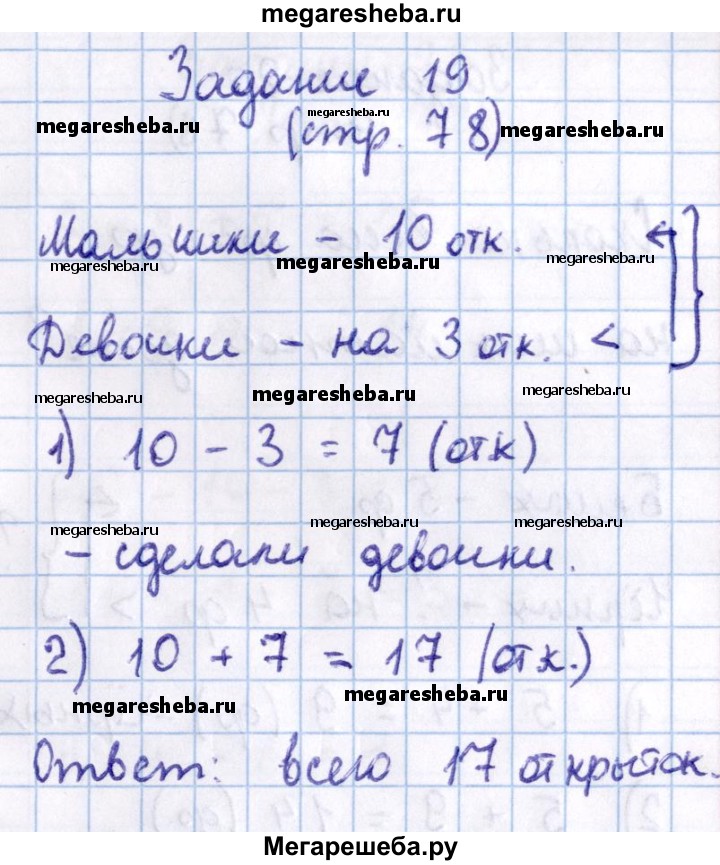 megaresheba.ru
Задание 19
megaresheba.ru
megaresheba.ru
(стр. 78)
megaresheba.ru
Мальчики - 10 отк.
megaresheba.ru
megaresheba.ru
megaresheba.ru
Девочки - на 3 отк. <
megaresheba.ru
megaresheba.ru
megaresheba.ru
1) 10 - 3 = 7 (отк)
megaresheba.ru
megaresheba.ru
megaresheba.ru
- сделали девочки.
2) 10 + 7 = 17 (отк.)
megaresheba.ru
megaresheba.ru
Ответ: всего 17 открыток.
Мегарешеба.ру